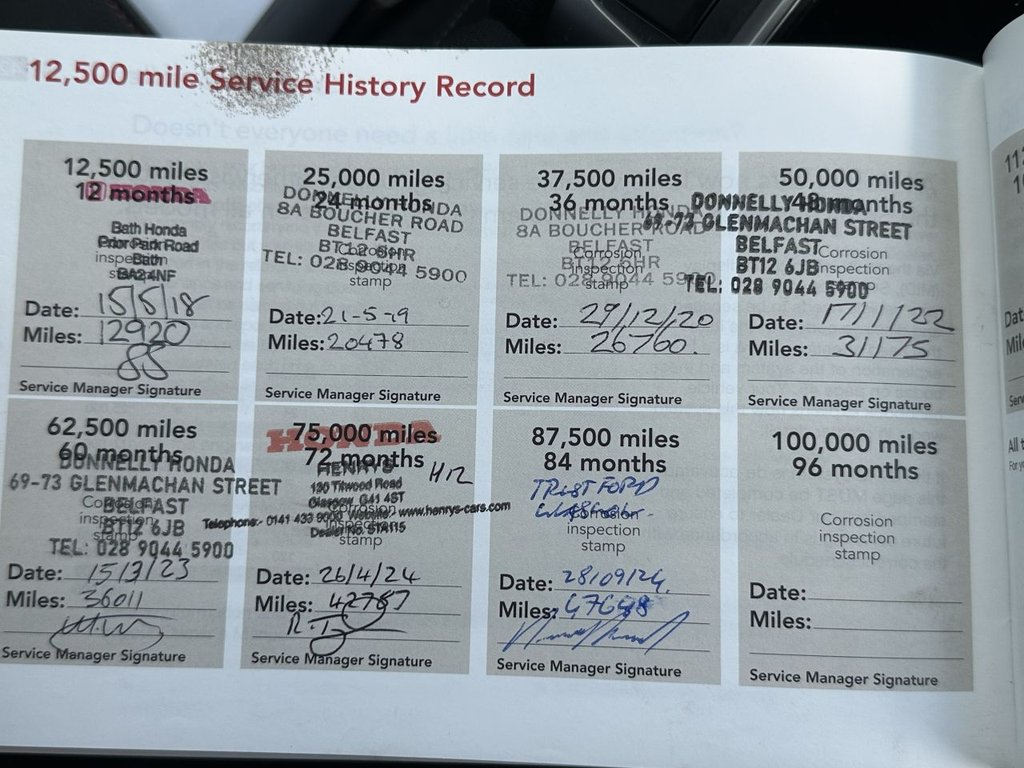 12,500 mile Service History Record
12,500 miles
12 months
HONDA
Bath Honda
Prior Park Road
Bath
BA2 4NF
Corrosion
inspection
stamp
Date: 15/5/18
Miles: 12920
Service Manager Signature
25,000 miles
24 months
DONNELLY HONDA
8A BOUCHER ROAD
BELFAST
BT12 6HR
TEL: 028 9044 5900
Corrosion
inspection
stamp
Date: 21-5-19
Miles: 20478
Service Manager Signature
37,500 miles
36 months
DONNELLY HONDA
8A BOUCHER ROAD
BELFAST
BT12 6HR
TEL: 028 9044 5900
Corrosion
inspection
stamp
Date: 29/12/20
Miles: 26760.
Service Manager Signature
50,000 miles
48 months
DONNELLY HONDA
69-73 GLENMACHAN STREET
BELFAST
BT12 6JB
TEL: 028 9044 5900
Corrosion
inspection
stamp
Date: 17/1/22
Miles: 31175
Service Manager Signature
62,500 miles
60 months
DONNELLY HONDA
69-73 GLENMACHAN STREET
BELFAST
BT12 6JB
TEL: 028 9044 5900
Corrosion
inspection
stamp
Date: 15/3/23
Miles: 36011
Service Manager Signature
75,000 miles
72 months
HONDA
HENRY'S
130 Titwood Road
Glasgow G41 4ST
Telephone:- 0141 433 9000 Website:- www.henrys-cars.com
Corrosion
inspection
stamp
Date: 26/4/24
Miles: 42787
Service Manager Signature
87,500 miles
84 months
TRUST FORD
Corrosion
inspection
stamp
Date: 28/09/24
Miles: 47698
Service Manager Signature
100,000 miles
96 months
Corrosion
inspection
stamp
Date:
Miles:
Service Manager Signature